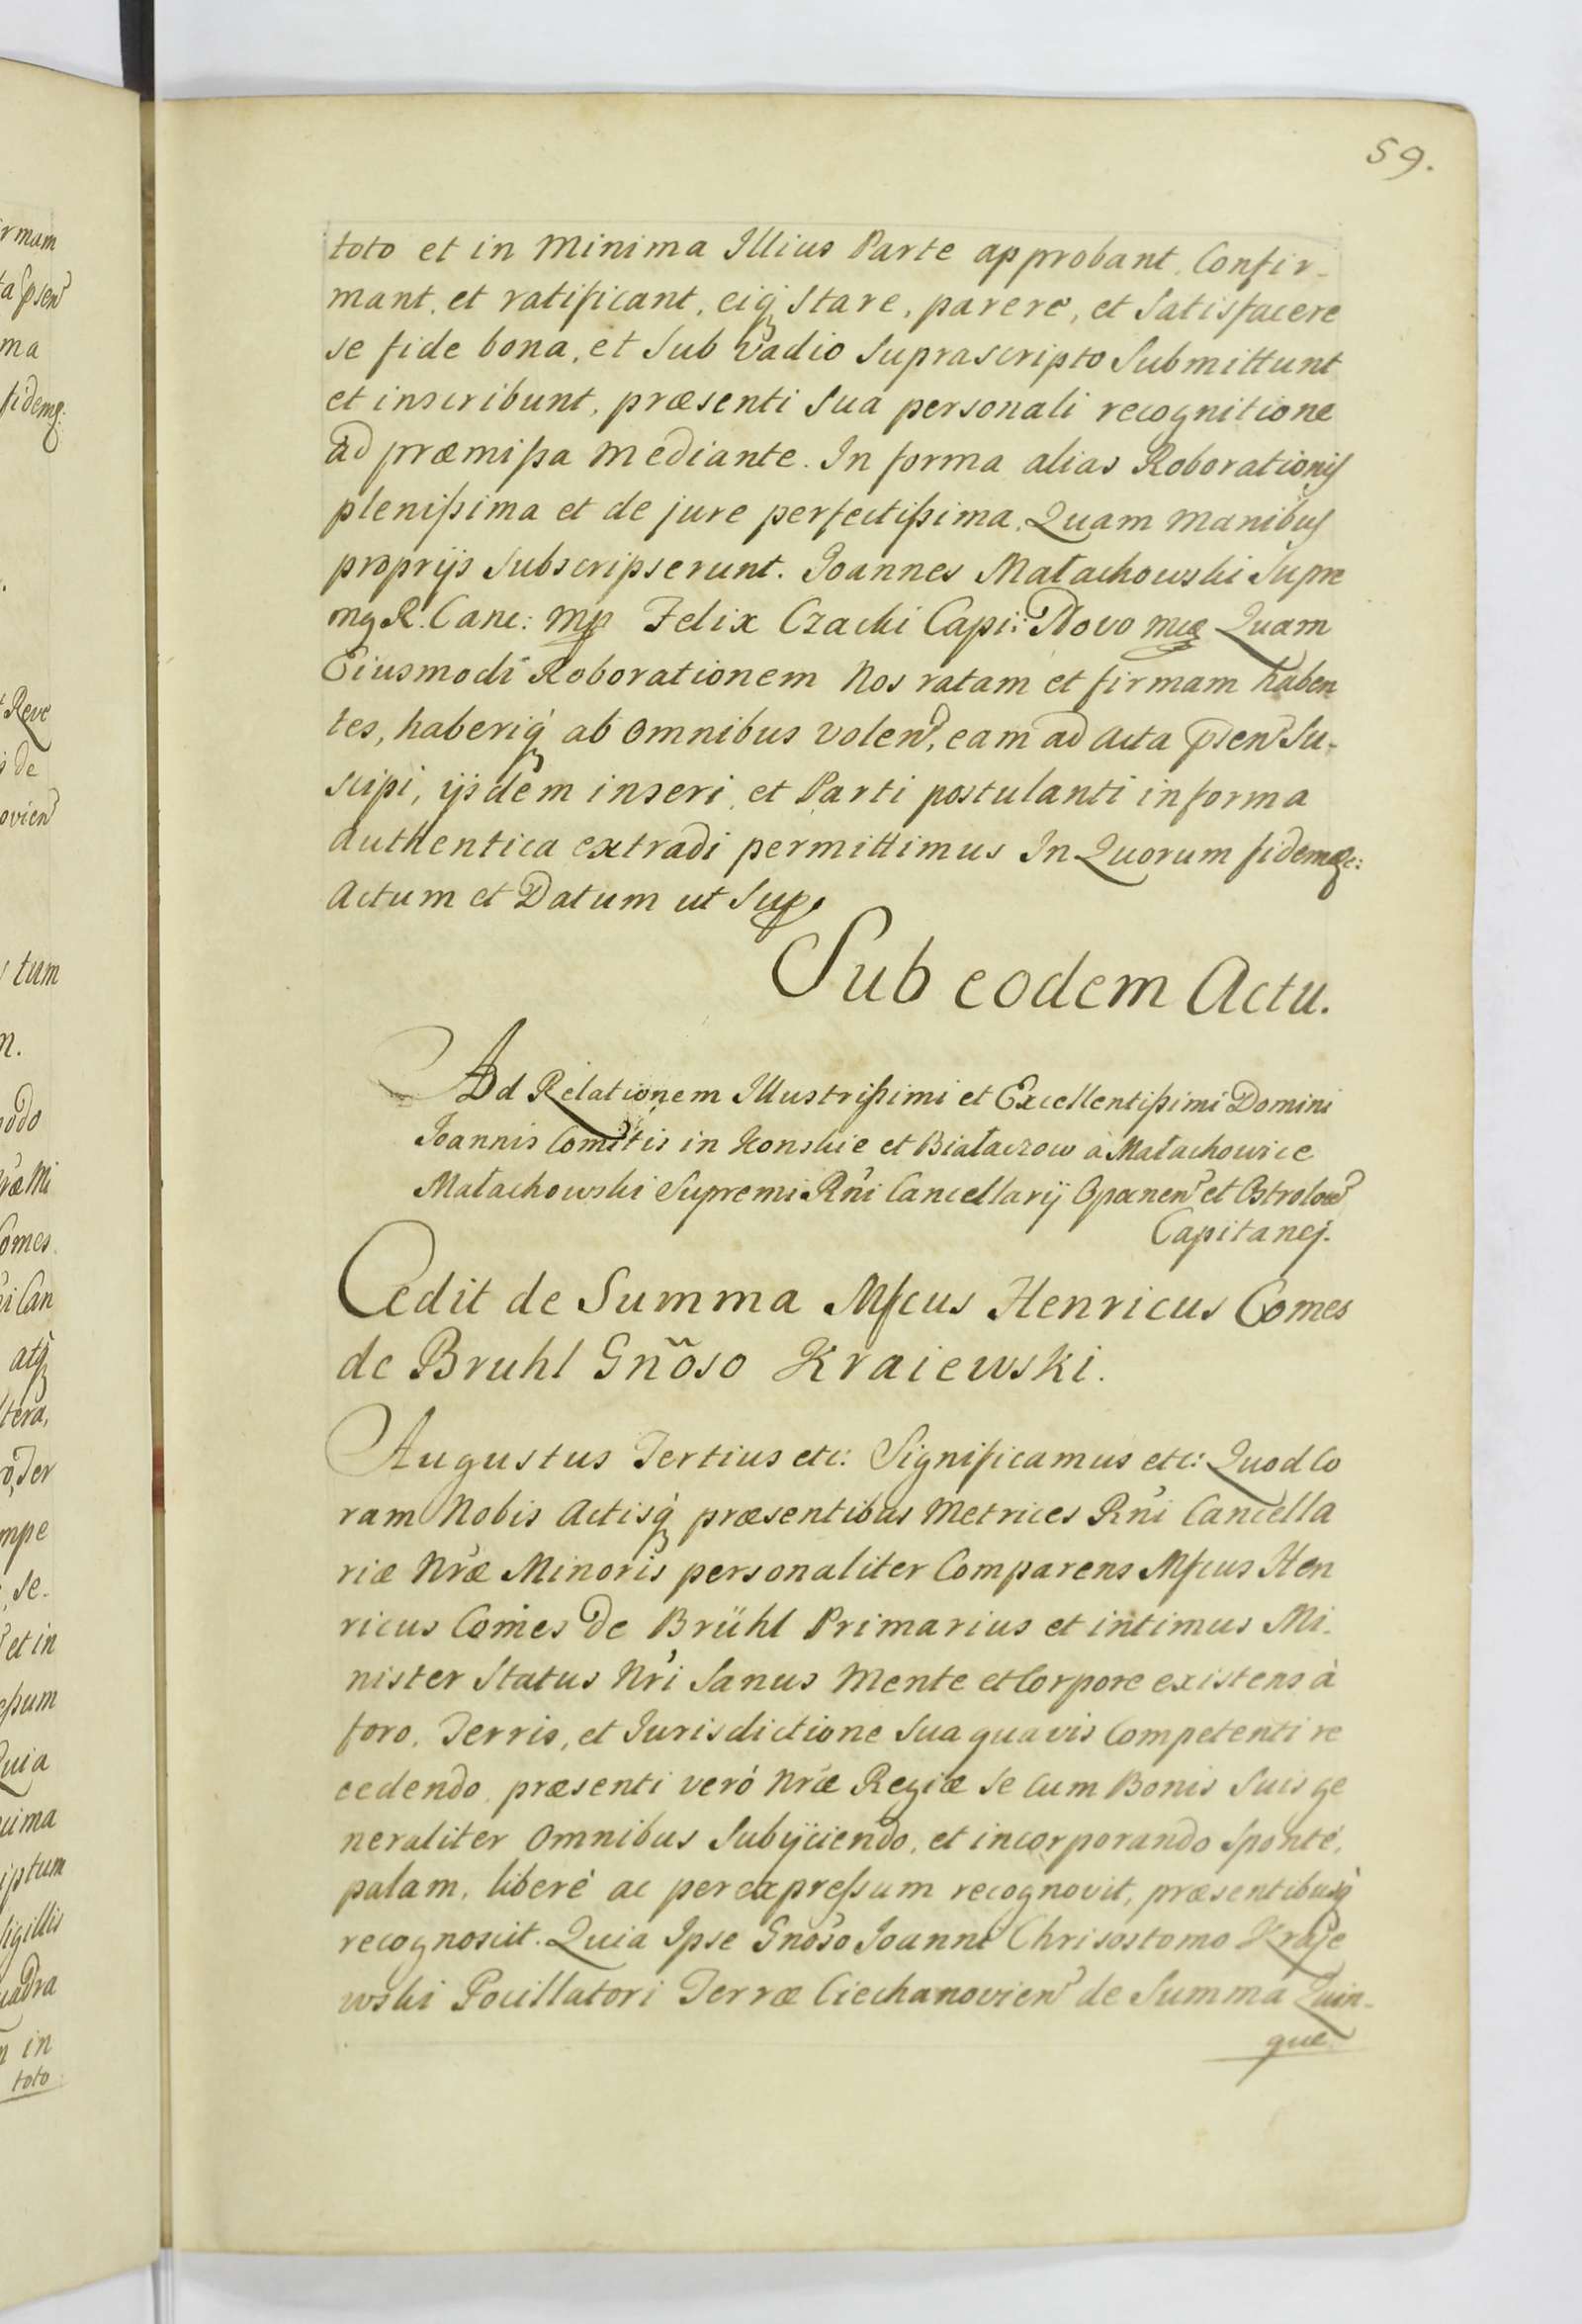 59.
toto et in minima Illius Parte approbant, Confir-
mant, et ratificant, eiq́ stare, parere, et Satisfacere
se fide bona, et sub vadio suprascripto Submittunt
et inscribunt, præsenti sua personali recognitione
ad præmißa mediante. In forma alias Roborationis
plenißima et de jure perfectißima. Quam manibus
proprijs subscripserunt. Joannes Małachowski Supre
mq R. Canc: mp Felix Czacki Capi: Novo mcæ Quam
Eiusmodi Roborationem Nos ratam et firmam haben
tes, haberiq́ ab omnibus volen, eam ad acta psen Su-
scipi, ijsdem inseri, et Parti postulanti in forma
authentica extradi permittimus In Quorum fidem &c:
Actum et Datum ut sup.
Sub eodem Actu.
Ad Relationem Illustrißimi et Excellentißimi Domini
Joannis Comitis in Konskie et Białaczow à Małachowice
Małachowski Supremi Rńi Cancellarij Opocnen et Ostrolow
Capitanej.
Cedit de Summa Mfcus Henricus Comes
de Bruhl Gñõso Kraiewski.
Augustus Tertius etc: Significamus etc: Quod Co
ram Nobis Actisq́ præsentibus Metrices Rńi Cancella
riæ Nræ Minoris personaliter Comparens Mfcus Hen
ricus Comes De Brühl Primarius et intimus Mi-
nister Status Nri Sanus Mente et Corpore existens à
foro, Terris, et Jurisdictione sua quavis Competenti re
cedendo, præsenti veró Nræ Regiæ se cum Bonis Suis ge
neraliter omnibus Subijciendo, et incorporando sponté,
palam, liberé ac per expressum recognovit, præsentibusq́
recognoscit. Quia Ipse Gnoso Joanni Chrisostomo Kraje
wski Pocillatori Terræ Ciechanovien de Summa Quin-
que